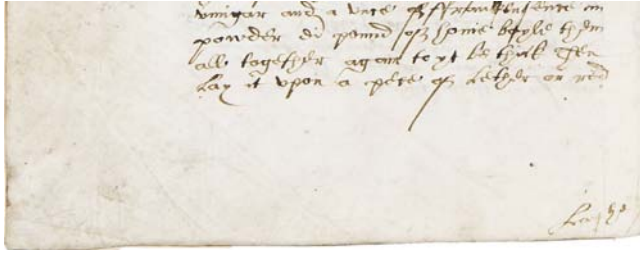 vinigar and a unce of ffrankinsence in
powder di pound of honie boyle them
all together again to yt be thick then
Lay it vpon a pece of Lether or red